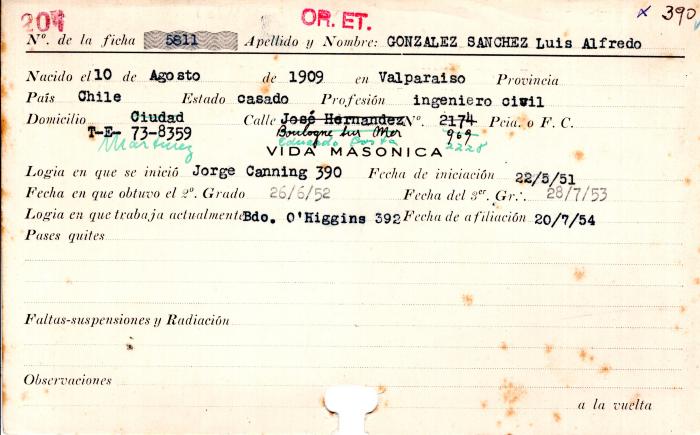 207 OR. ET. x 390
Nº. de la ficha 5811 Apellido y Nombre: GONZALEZ SANCHEZ Luis Alfredo
Nacido el 10 de Agosto de 1909 en Valparaiso Provincia
País Chile Estado casado Profesión ingeniero civil
Domicilio Ciudad Calle José Hernandez Nº. 2174 Pcia. o F. C.
T-E- 73-8359 Boulogne Sur Mer 969
Martinez Eduardo Costa 2228
VIDA MASONICA
Logia en que se inició Jorge Canning 390 Fecha de iniciación 22/5/51
Fecha en que obtuvo el 2º. Grado 26/6/52 Fecha del 3er. Gr∴ 28/7/53
Logia en que trabaja actualmente Bdo. O'Higgins 392 Fecha de afiliación 20/7/54
Pases quites
Faltas-suspensiones y Radiación
Observaciones
a la vuelta